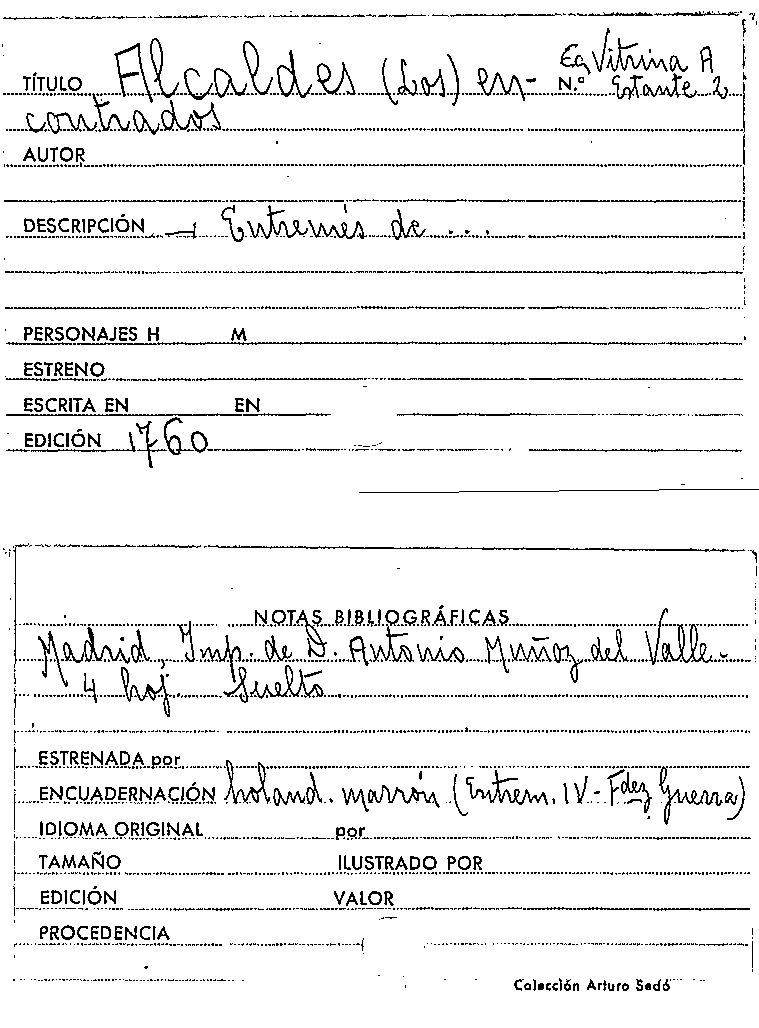 Eq Vitrina A
TÍTULO Alcaldes (Los) en- N.º Estante 2
contrados
AUTOR
DESCRIPCIÓN — Entremés de ...
PERSONAJES H M
ESTRENO
ESCRITA EN EN
EDICIÓN 1760
NOTAS BIBLIOGRÁFICAS
Madrid, Imp. de D. Antonio Muñoz del Valle.-
4 hoj. Suelto.
ESTRENADA por
ENCUADERNACIÓN holand. marrón (Entrem. IV - Fdez Guerra)
IDIOMA ORIGINAL por
TAMAÑO ILUSTRADO POR
EDICIÓN VALOR
PROCEDENCIA
Colección Arturo Sedó